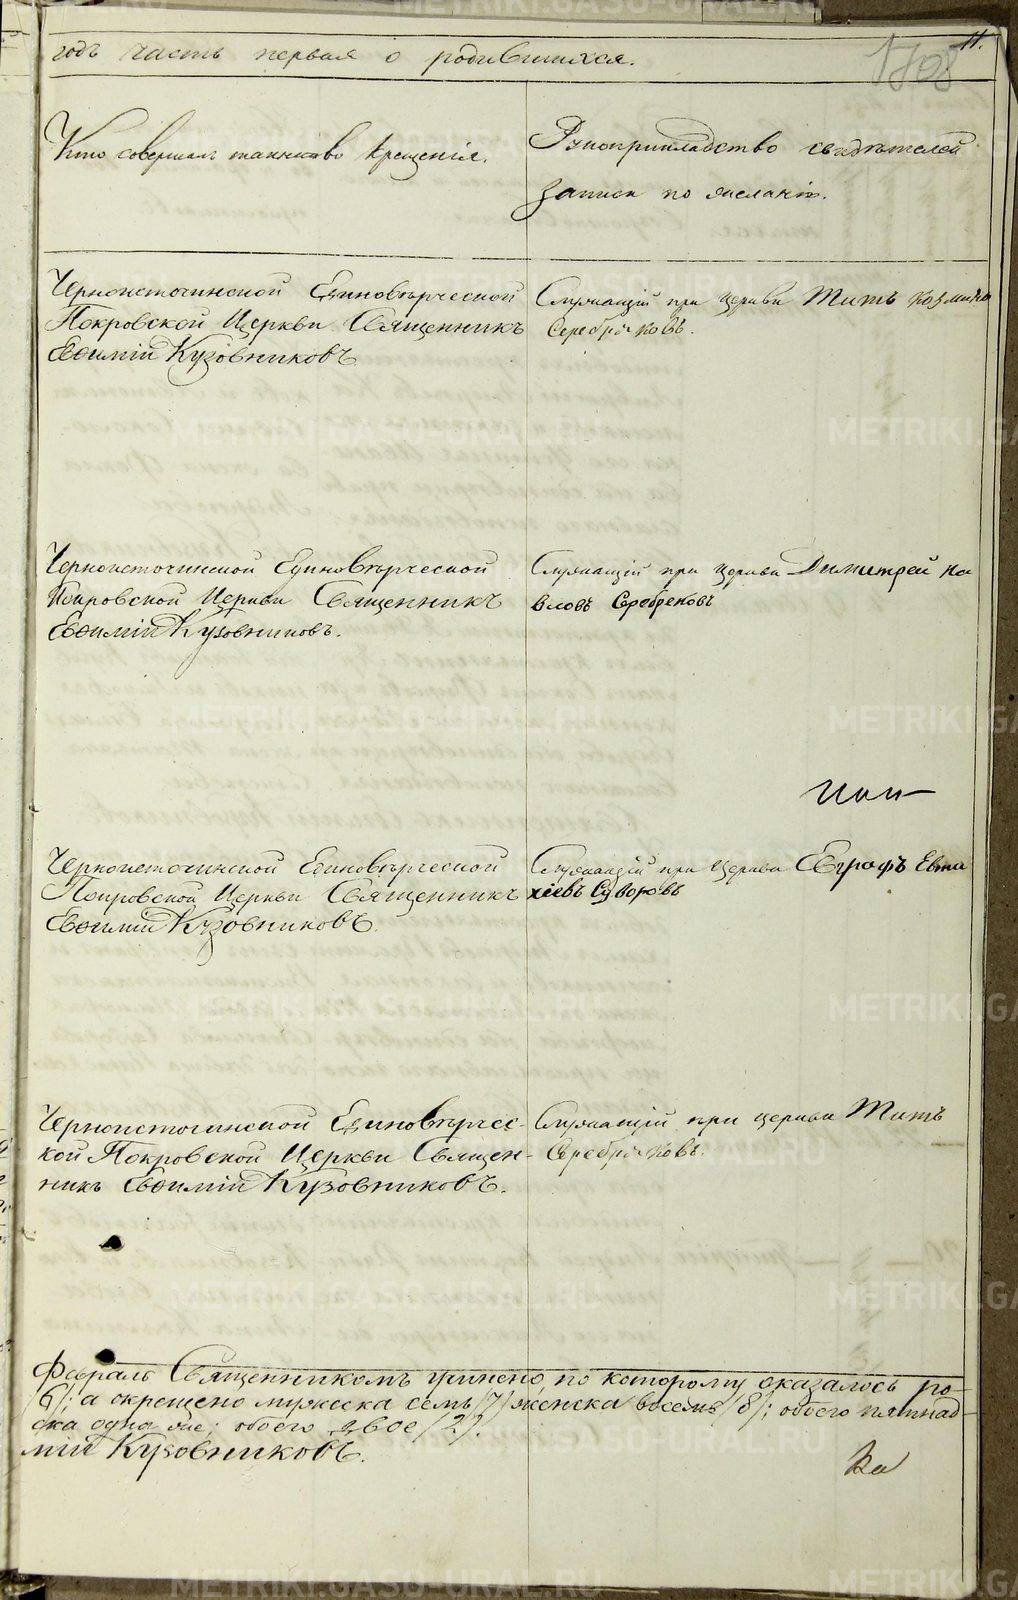 11.
годъ часть первая о родившихся.
Кто совершалъ таинство крещенія.
Рукоприкладство свидѣтелей
записи по желанію.
Черноисточинской Единовѣрческой
Покровской Церкви Священникъ
Евѳимій Кузовниковъ
Служащій при церкви Титъ Козминъ
Серебряковъ.
Черноисточинской Единовѣрческой
Покровской Церкви Священникъ
Евѳимій Кузовниковъ.
Служащій при церкви Димитрей Па
вловъ Серебрековъ
Черноисточинской Единовѣрческой
Покровской Церкви Священникъ
Евѳимій Кузовниковъ.
Служащій при Церкви Евграфъ Евти
хіевъ Суворовъ
Черноисточинской Единовѣрчес-
кой Покровской Церкви Священ-
никъ Евѳимій Кузовниковъ.
Служащій при церкви Титъ
Серебряковъ.
Февраль Священникомъ учинено, по которому оказалось ро-
/6/; а окрещено мужеска семь /7/ женска восемь /8/; обоего пятнад-
ска одна же; обоего двое /2/.
мій Кузовниковъ.
METRIKI.GASO-URAL.RU